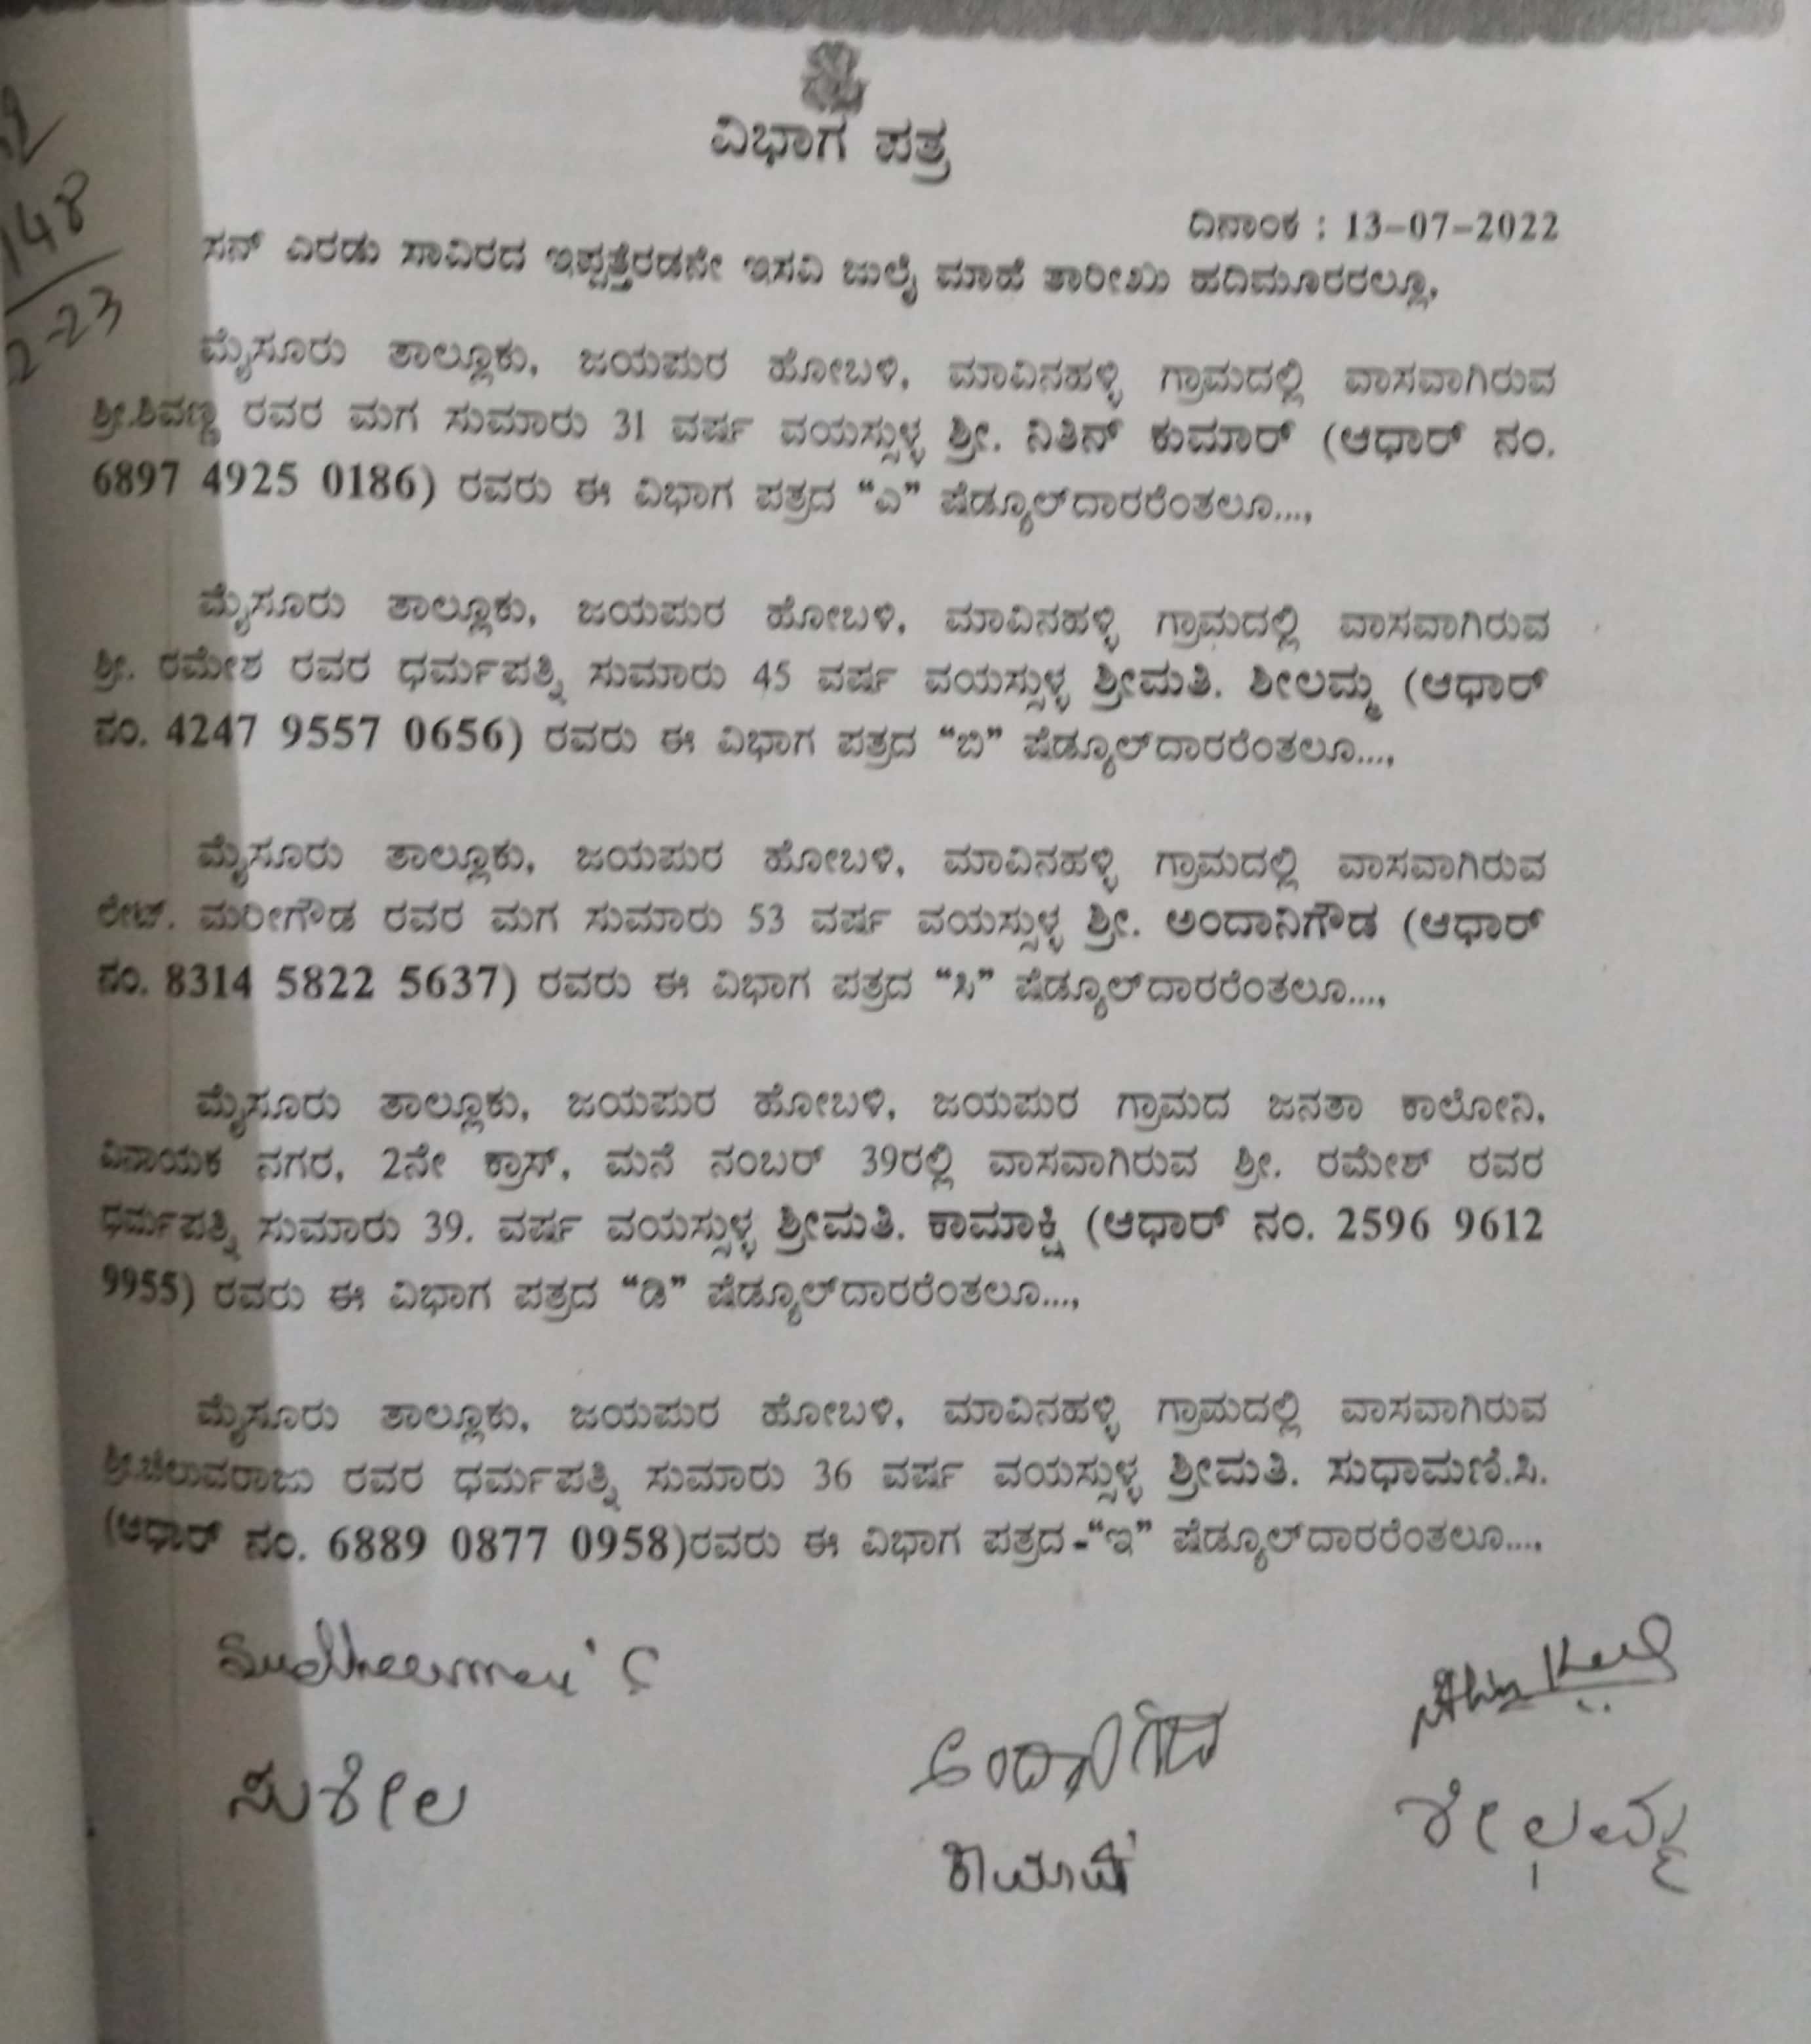 148
2-23
ವಿಭಾಗ ಪತ್ರ
ದಿನಾಂಕ : 13-07-2022
ಸನ್ ಎರಡು ಸಾವಿರದ ಇಪ್ಪತ್ತೆರಡನೇ ಇಸವಿ ಜುಲೈ ಮಾಹೆ ತಾರೀಖು ಹದಿಮೂರರಲ್ಲೂ,
ಮೈಸೂರು ತಾಲ್ಲೂಕು, ಜಯಪುರ ಹೋಬಳಿ, ಮಾವಿನಹಳ್ಳಿ ಗ್ರಾಮದಲ್ಲಿ ವಾಸವಾಗಿರುವ
ಶ್ರೀ.ಶಿವಣ್ಣ ರವರ ಮಗ ಸುಮಾರು 31 ವರ್ಷ ವಯಸ್ಸುಳ್ಳ ಶ್ರೀ. ನಿತಿನ್ ಕುಮಾರ್ (ಆಧಾರ್ ನಂ.
6897 4925 0186) ರವರು ಈ ವಿಭಾಗ ಪತ್ರದ “ಎ” ಷೆಡ್ಯೂಲ್‌ದಾರರೆಂತಲೂ...,
ಮೈಸೂರು ತಾಲ್ಲೂಕು, ಜಯಪುರ ಹೋಬಳಿ, ಮಾವಿನಹಳ್ಳಿ ಗ್ರಾಮದಲ್ಲಿ ವಾಸವಾಗಿರುವ
ಶ್ರೀ. ರಮೇಶ ರವರ ಧರ್ಮಪತ್ನಿ ಸುಮಾರು 45 ವರ್ಷ ವಯಸ್ಸುಳ್ಳ ಶ್ರೀಮತಿ. ಶೀಲಮ್ಮ (ಆಧಾರ್
ನಂ. 4247 9557 0656) ರವರು ಈ ವಿಭಾಗ ಪತ್ರದ “ಬಿ” ಷೆಡ್ಯೂಲ್‌ದಾರರೆಂತಲೂ...,
ಮೈಸೂರು ತಾಲ್ಲೂಕು, ಜಯಪುರ ಹೋಬಳಿ, ಮಾವಿನಹಳ್ಳಿ ಗ್ರಾಮದಲ್ಲಿ ವಾಸವಾಗಿರುವ
ಲೇಟ್. ಮರೀಗೌಡ ರವರ ಮಗ ಸುಮಾರು 53 ವರ್ಷ ವಯಸ್ಸುಳ್ಳ ಶ್ರೀ. ಅಂದಾನಿಗೌಡ (ಆಧಾರ್
ನಂ. 8314 5822 5637) ರವರು ಈ ವಿಭಾಗ ಪತ್ರದ “ಸಿ” ಷೆಡ್ಯೂಲ್‌ದಾರರೆಂತಲೂ...,
ಮೈಸೂರು ತಾಲ್ಲೂಕು, ಜಯಪುರ ಹೋಬಳಿ, ಜಯಪುರ ಗ್ರಾಮದ ಜನತಾ ಕಾಲೋನಿ,
ವಿನಾಯಕ ನಗರ, 2ನೇ ಕ್ರಾಸ್, ಮನೆ ನಂಬರ್ 39ರಲ್ಲಿ ವಾಸವಾಗಿರುವ ಶ್ರೀ. ರಮೇಶ್ ರವರ
ಧರ್ಮಪತ್ನಿ ಸುಮಾರು 39. ವರ್ಷ ವಯಸ್ಸುಳ್ಳ ಶ್ರೀಮತಿ. ಕಾಮಾಕ್ಷಿ (ಆಧಾರ್ ನಂ. 2596 9612
9955) ರವರು ಈ ವಿಭಾಗ ಪತ್ರದ “ಡಿ” ಷೆಡ್ಯೂಲ್‌ದಾರರೆಂತಲೂ...,
ಮೈಸೂರು ತಾಲ್ಲೂಕು, ಜಯಪುರ ಹೋಬಳಿ, ಮಾವಿನಹಳ್ಳಿ ಗ್ರಾಮದಲ್ಲಿ ವಾಸವಾಗಿರುವ
ಶ್ರೀ.ಚೆಲುವರಾಜು ರವರ ಧರ್ಮಪತ್ನಿ ಸುಮಾರು 36 ವರ್ಷ ವಯಸ್ಸುಳ್ಳ ಶ್ರೀಮತಿ. ಸುಧಾಮಣಿ.ಸಿ.
(ಆಧಾರ್ ನಂ. 6889 0877 0958)ರವರು ಈ ವಿಭಾಗ ಪತ್ರದ-“ಇ” ಷೆಡ್ಯೂಲ್‌ದಾರರೆಂತಲೂ...,
ಸುಶೀಲ
ಶೀಲಮ್ಮ